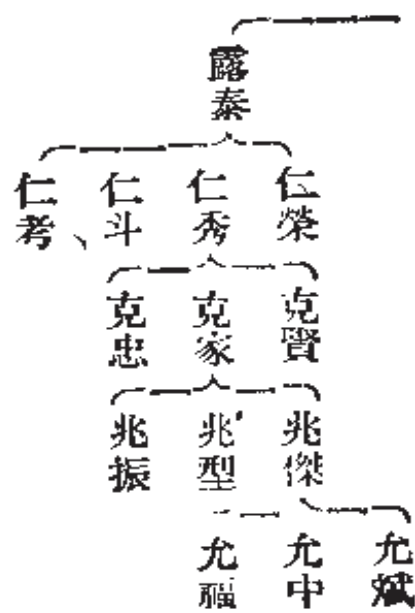 露泰
仁榮
仁秀
仁斗
仁考
克賢
克家
克忠
兆傑
兆型
兆振
允斌
允中
允福